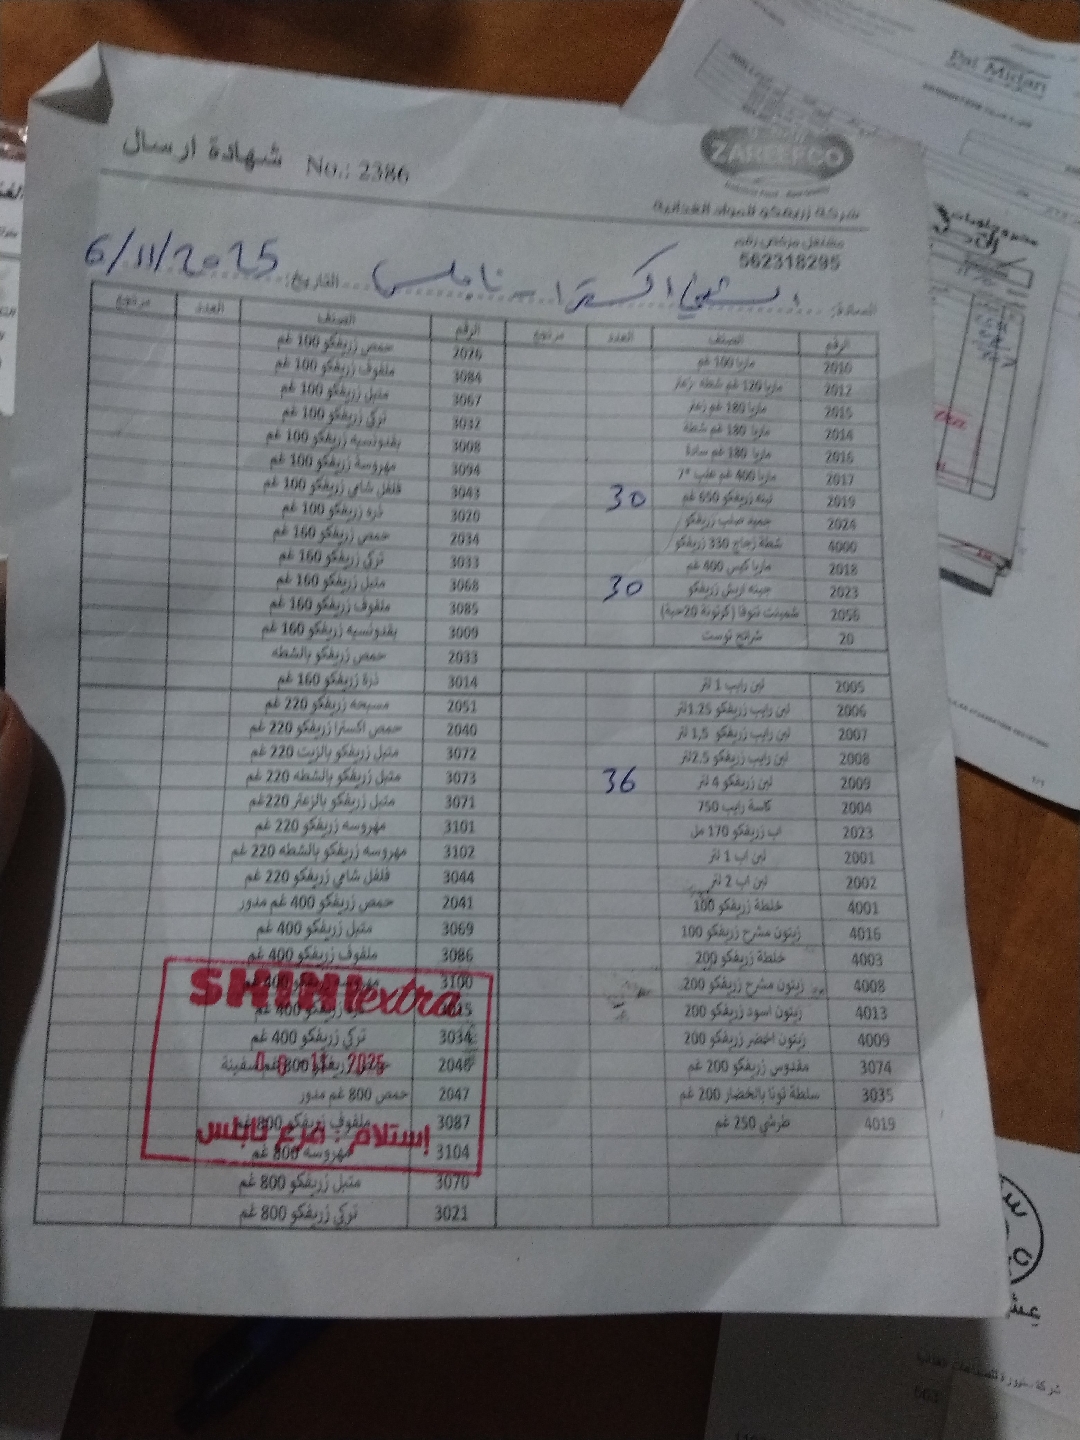 شهادة ارسال
No.: 2386
ZAREEFCO
شركة زريفكو للمواد الغذائية
مشتغل مرخص رقم
562318295
السادة: الشني اكسترا - نابلس التاريخ: 6/11/2025
الرقم الصنف العدد مرتجع
2010 مارينا 100 غم
2012 120 غم شطة زعتر
2015 180 غم زعتر
2014 180 غم شطة
2016 180 غم سادة
2017 400 غم علب
2019 لبنه زريفكو 650 غم 30
2024 زريفكو
4000 شطة زجاج 330 زريفكو
2018 كيس 400 غم
2023 جبنه زريفكو 30
2056 (كرتونة 20حبة)
20 شرائح توست
2005 لبن رايب 1 لتر
2006 لبن رايب زريفكو 1.25لتر
2007 لبن رايب زريفكو 1,5 لتر
2008 لبن رايب زريفكو 2.5لتر
2009 لبن زريفكو 4 لتر 36
2004 كاسة رايب 750
2023 اب زريفكو 170 مل
2001 لبن اب 1 لتر
2002 لبن اب 2 لتر
4001 خلطة زريفكو 100
4016 زيتون مشرح زريفكو 100
4003 خلطة زريفكو 200
4008 زيتون مشرح زريفكو 200
4013 زيتون اسود زريفكو 200
4009 زيتون اخضر زريفكو 200
3074 مقدوس زريفكو 200 غم
3035 سلطة تونا بالخضار 200 غم
4019 طرشي 250 غم
الرقم الصنف العدد مرتجع
2026 حمص زريفكو 100 غم
3084 ملفوف زريفكو 100 غم
3067 متبل زريفكو 100 غم
3032 تركي زريفكو 100 غم
3008 بقدونسيه زريفكو 100 غم
3094 مهروسة زريفكو 100 غم
3043 فلفل شامي زريفكو 100 غم
3020 ذرة زريفكو 100 غم
2034 حمص زريفكو 160 غم
3033 تركي زريفكو 160 غم
3068 متبل زريفكو 160 غم
3085 ملفوف زريفكو 160 غم
3009 بقدونسيه زريفكو 160 غم
2033 حمص زريفكو بالشطه
3014 ذرة زريفكو 160 غم
2051 مسبحه زريفكو 220 غم
2040 حمص اكسترا زريفكو 220 غم
3072 متبل زريفكو بالزيت 220 غم
3073 متبل زريفكو بالشطه 220 غم
3071 متبل زريفكو بالزعتر 220غم
3101 مهروسه زريفكو 220 غم
3102 مهروسه زريفكو بالشطه 220 غم
3044 فلفل شامي زريفكو 220 غم
2041 حمص زريفكو 400 غم مدور
3069 متبل زريفكو 400 غم
3086 ملفوف زريفكو 400 غم
3100 مهروسه زريفكو 400 غم
زريفكو 400 غم
3034 تركي زريفكو 400 غم
2046 حمص زريفكو 800 غم سفينة
2047 حمص 800 غم مدور
3087 ملفوف زريفكو 800 غم
3104 مهروسه 800 غم
3070 متبل زريفكو 800 غم
3021 تركي زريفكو 800 غم
SHINI extra
11. 2025
إستلام : فرع نابلس
Pal Midan